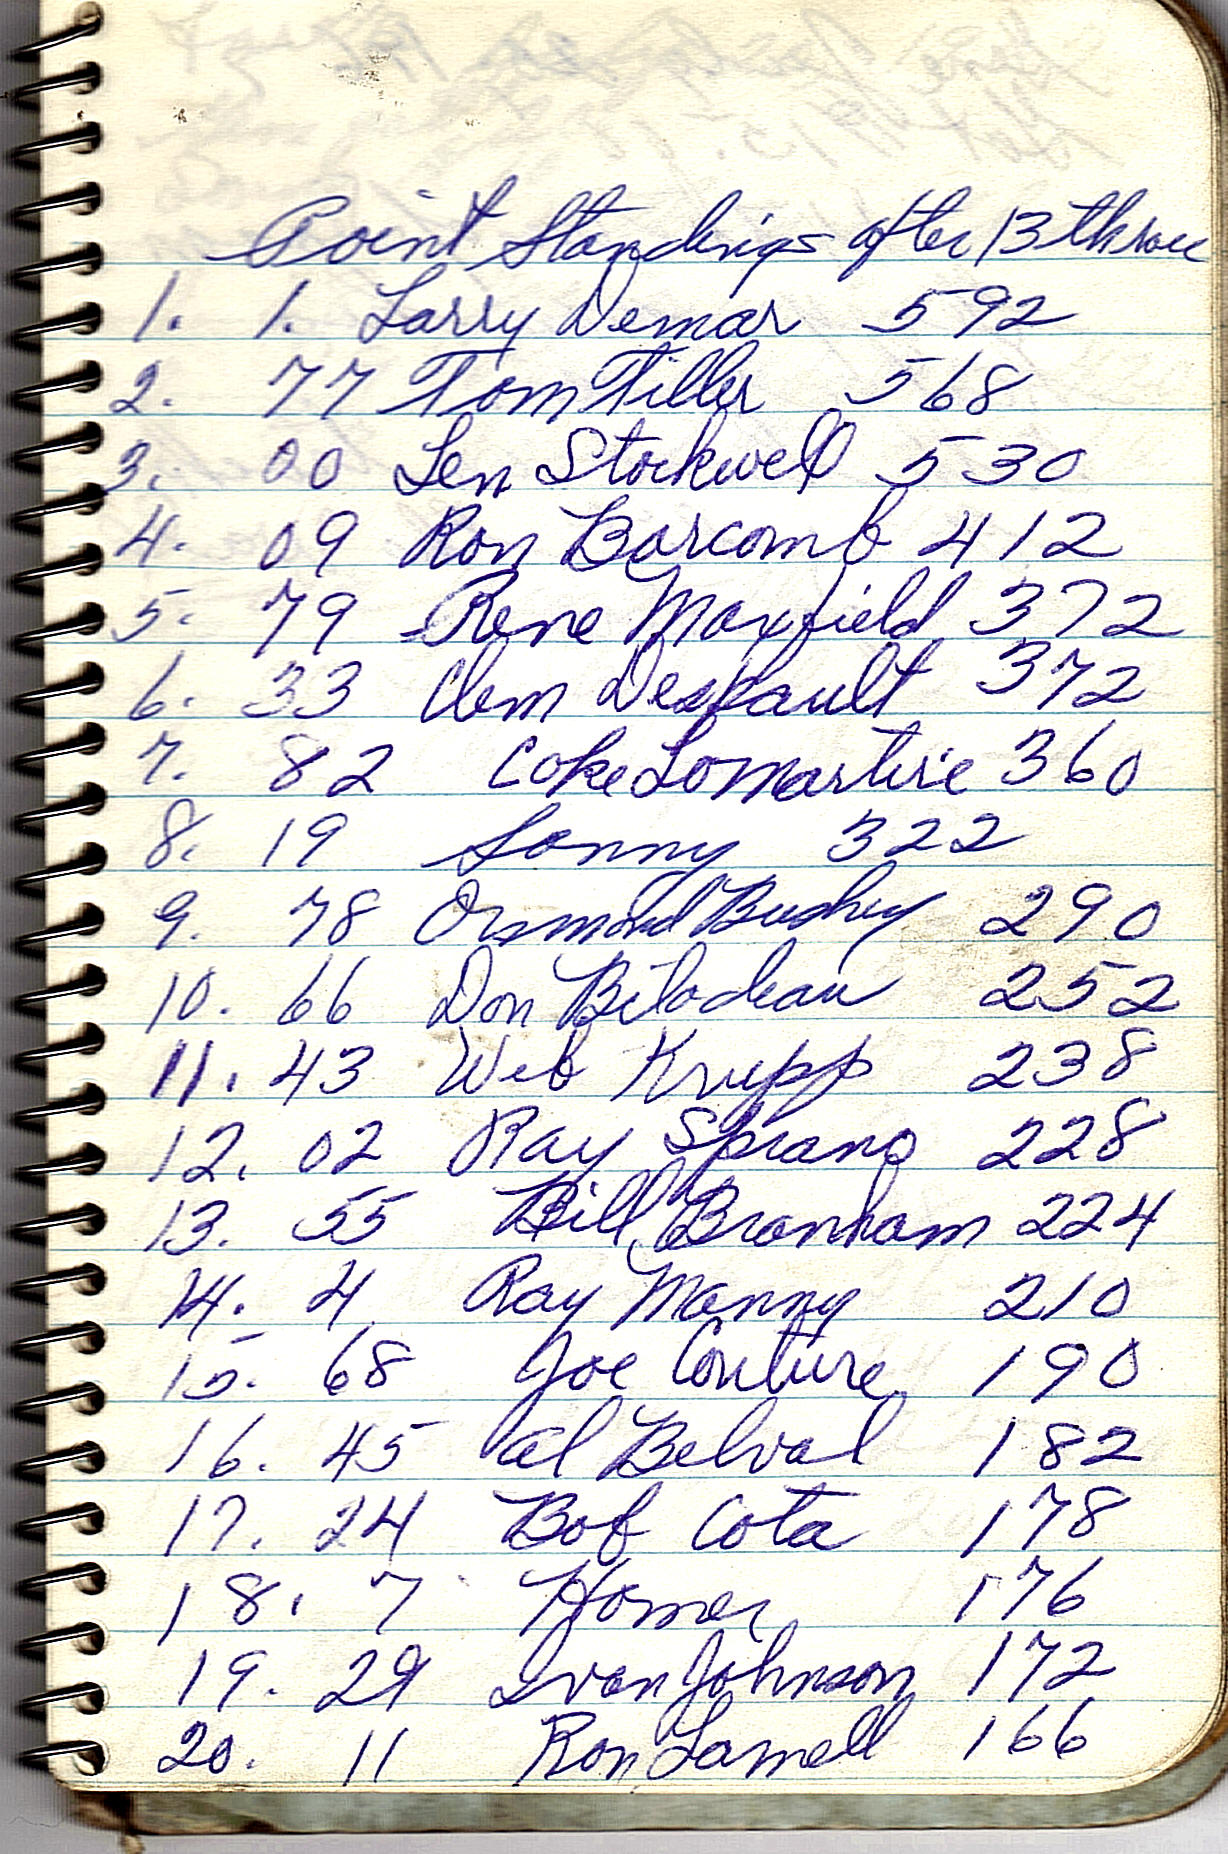 Point Standings after 13th race
1. 1. Larry Demar 592
2. 77 Tom Tiller 568
3. 00 Len Stockwell 530
4. 09 Ron Barcomb 412
5. 79 Rene Maxfield 372
6. 33 Clem Despault 372
7. 82 Coke Lamartire 360
8. 19 Sonny 322
9. 78 Ormond Bushey 290
10. 66 Don Bilodeau 252
11. 43 Web Krupp 238
12. 02 Ray Sprano 228
13. 55 Bill Branham 224
14. 4 Ray Manny 210
15. 68 Joe Couture 190
16. 45 Al Belval 182
17. 24 Bob Cota 178
18. 7 Homer 176
19. 29 Ivan Johnson 172
20. 11 Ron Lamell 166